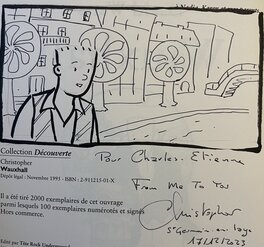 Collection Découverte
Christopher
Wauxhall
Dépôt légal : Novembre 1993 - ISBN : 2-911215-01-X
Il a été tiré 2000 exemplaires de cet ouvrage
parmi lesquels 100 exemplaires numérotés et signés
Hors commerce.
Edité par Tête Rock Underground
Pour Charles. Etienne
From Me To You
Christopher
St Germain-en-Laye
17/12/2023